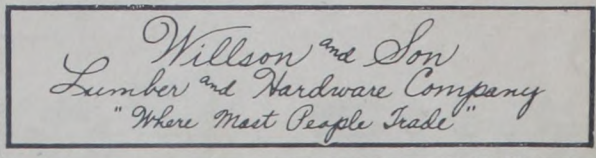 Willson and Son
Lumber and Hardware Company
"Where Most People Trade"